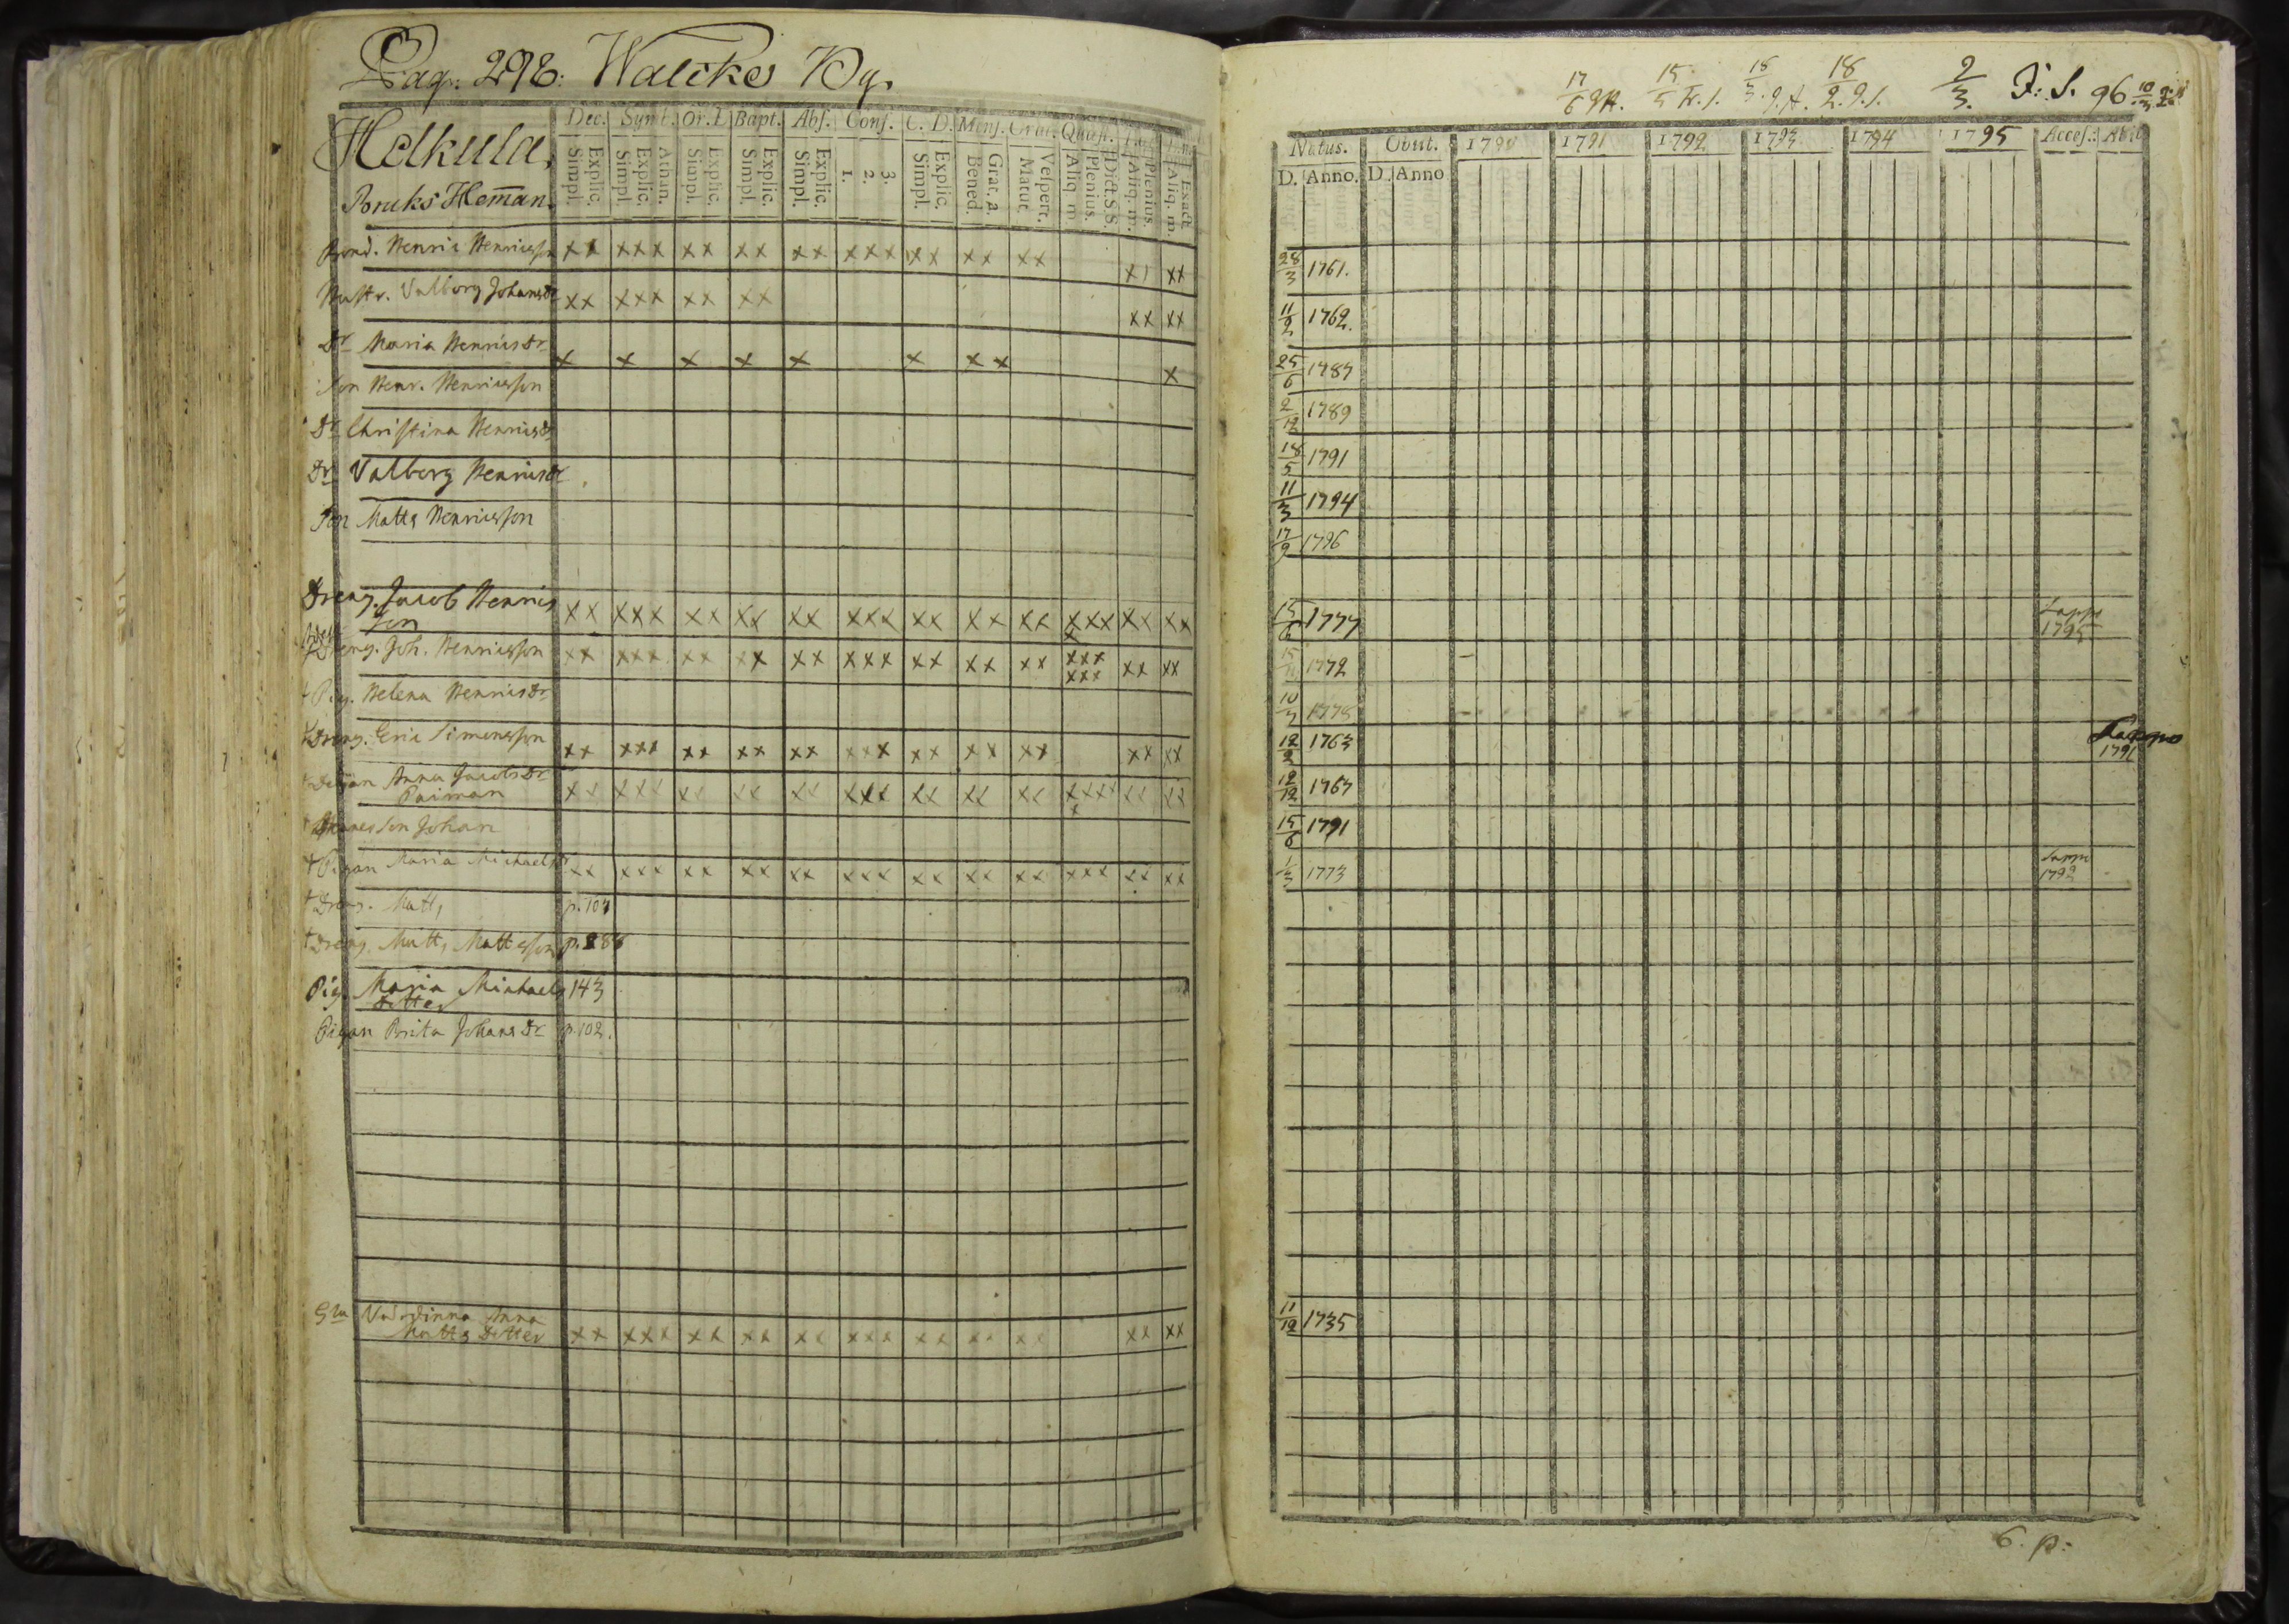 Pag. 298. Walikes By.
Helkula,
Bruks Heman.
Dec. Symb. Or. D Bapt. Abs. Conf. C. D. Mens. Orat. Quæst.
Explic. Simpl. Athan. Explic. Simpl. Explic. Simpl. Explic. Simpl. Explic. Simpl. 3. 2. 1. Explic. Simpl. Grat. a. Bened. Vesper. Matut. Dict. S.S. Plenius. Aliq. m. Plenius. Aliq. m. Exact. Aliq. m.
17/6 15/5 18/3 18/2 2/3 F. S. 96.
Natus. Obiit. 1790 1791 1792 1793 1794 1795 Acces. Abit
D. Anno. D. Anno
Bond. Henric Henricsson xx xxx xx xx xx xxx xx xx xx xx 28/3 1761.
Hustr. Valborg Johansdr xx xxx xx xx xx xx 11/2 1762.
Dr Maria Henricsdr x x x x x x x x x 25/6 1787
Son Henr. Henricsson 2/12 1789
Dr Christina Henricsdr 18/5 1791
Dr Valborg Henricsdr 11/3 1794
Son Matts Henricsson 17/9 1796
Dreng. Jacob Henricsson xx xxx xx xx xx xxx xx xx xx xxx x xx xx 15/6 1777 Lappo 1795
Dreng. Joh. Henricsson xx xxx xx xx xx xxx xx xx xx xxx xxx xx xx 1772
+ Pig. Helena Henricsdr 10/3 1778
+ Dreng. Eric Simonsson xx xxx xx xx xx xxx xx xx xx xx xx 12/2 1763 Lappo 1791
Anna Jacobsdr
Paiman xx xxx xx xx xx xxx xx xx xx xxxx x xx xx 12/12 1767
son Johan 15/6 1791
+ Pigan Maria Michaelsdr xx xxx xx xx xx xxx xx xx xx xxx xx xx 1/3 1773 Lappo 1792
+ Dreng. Matts p. 107
+ Dreng. Matts Mattsson p. 286
Pig. Maria Michaels
dotter 143
Pigan Brita Johansdr p. 102.
Gla Värdinna Anna
Matts Dotter xx xxx xx xx xx xxx xx xx xx xx xx 11/12 1735
6. p: